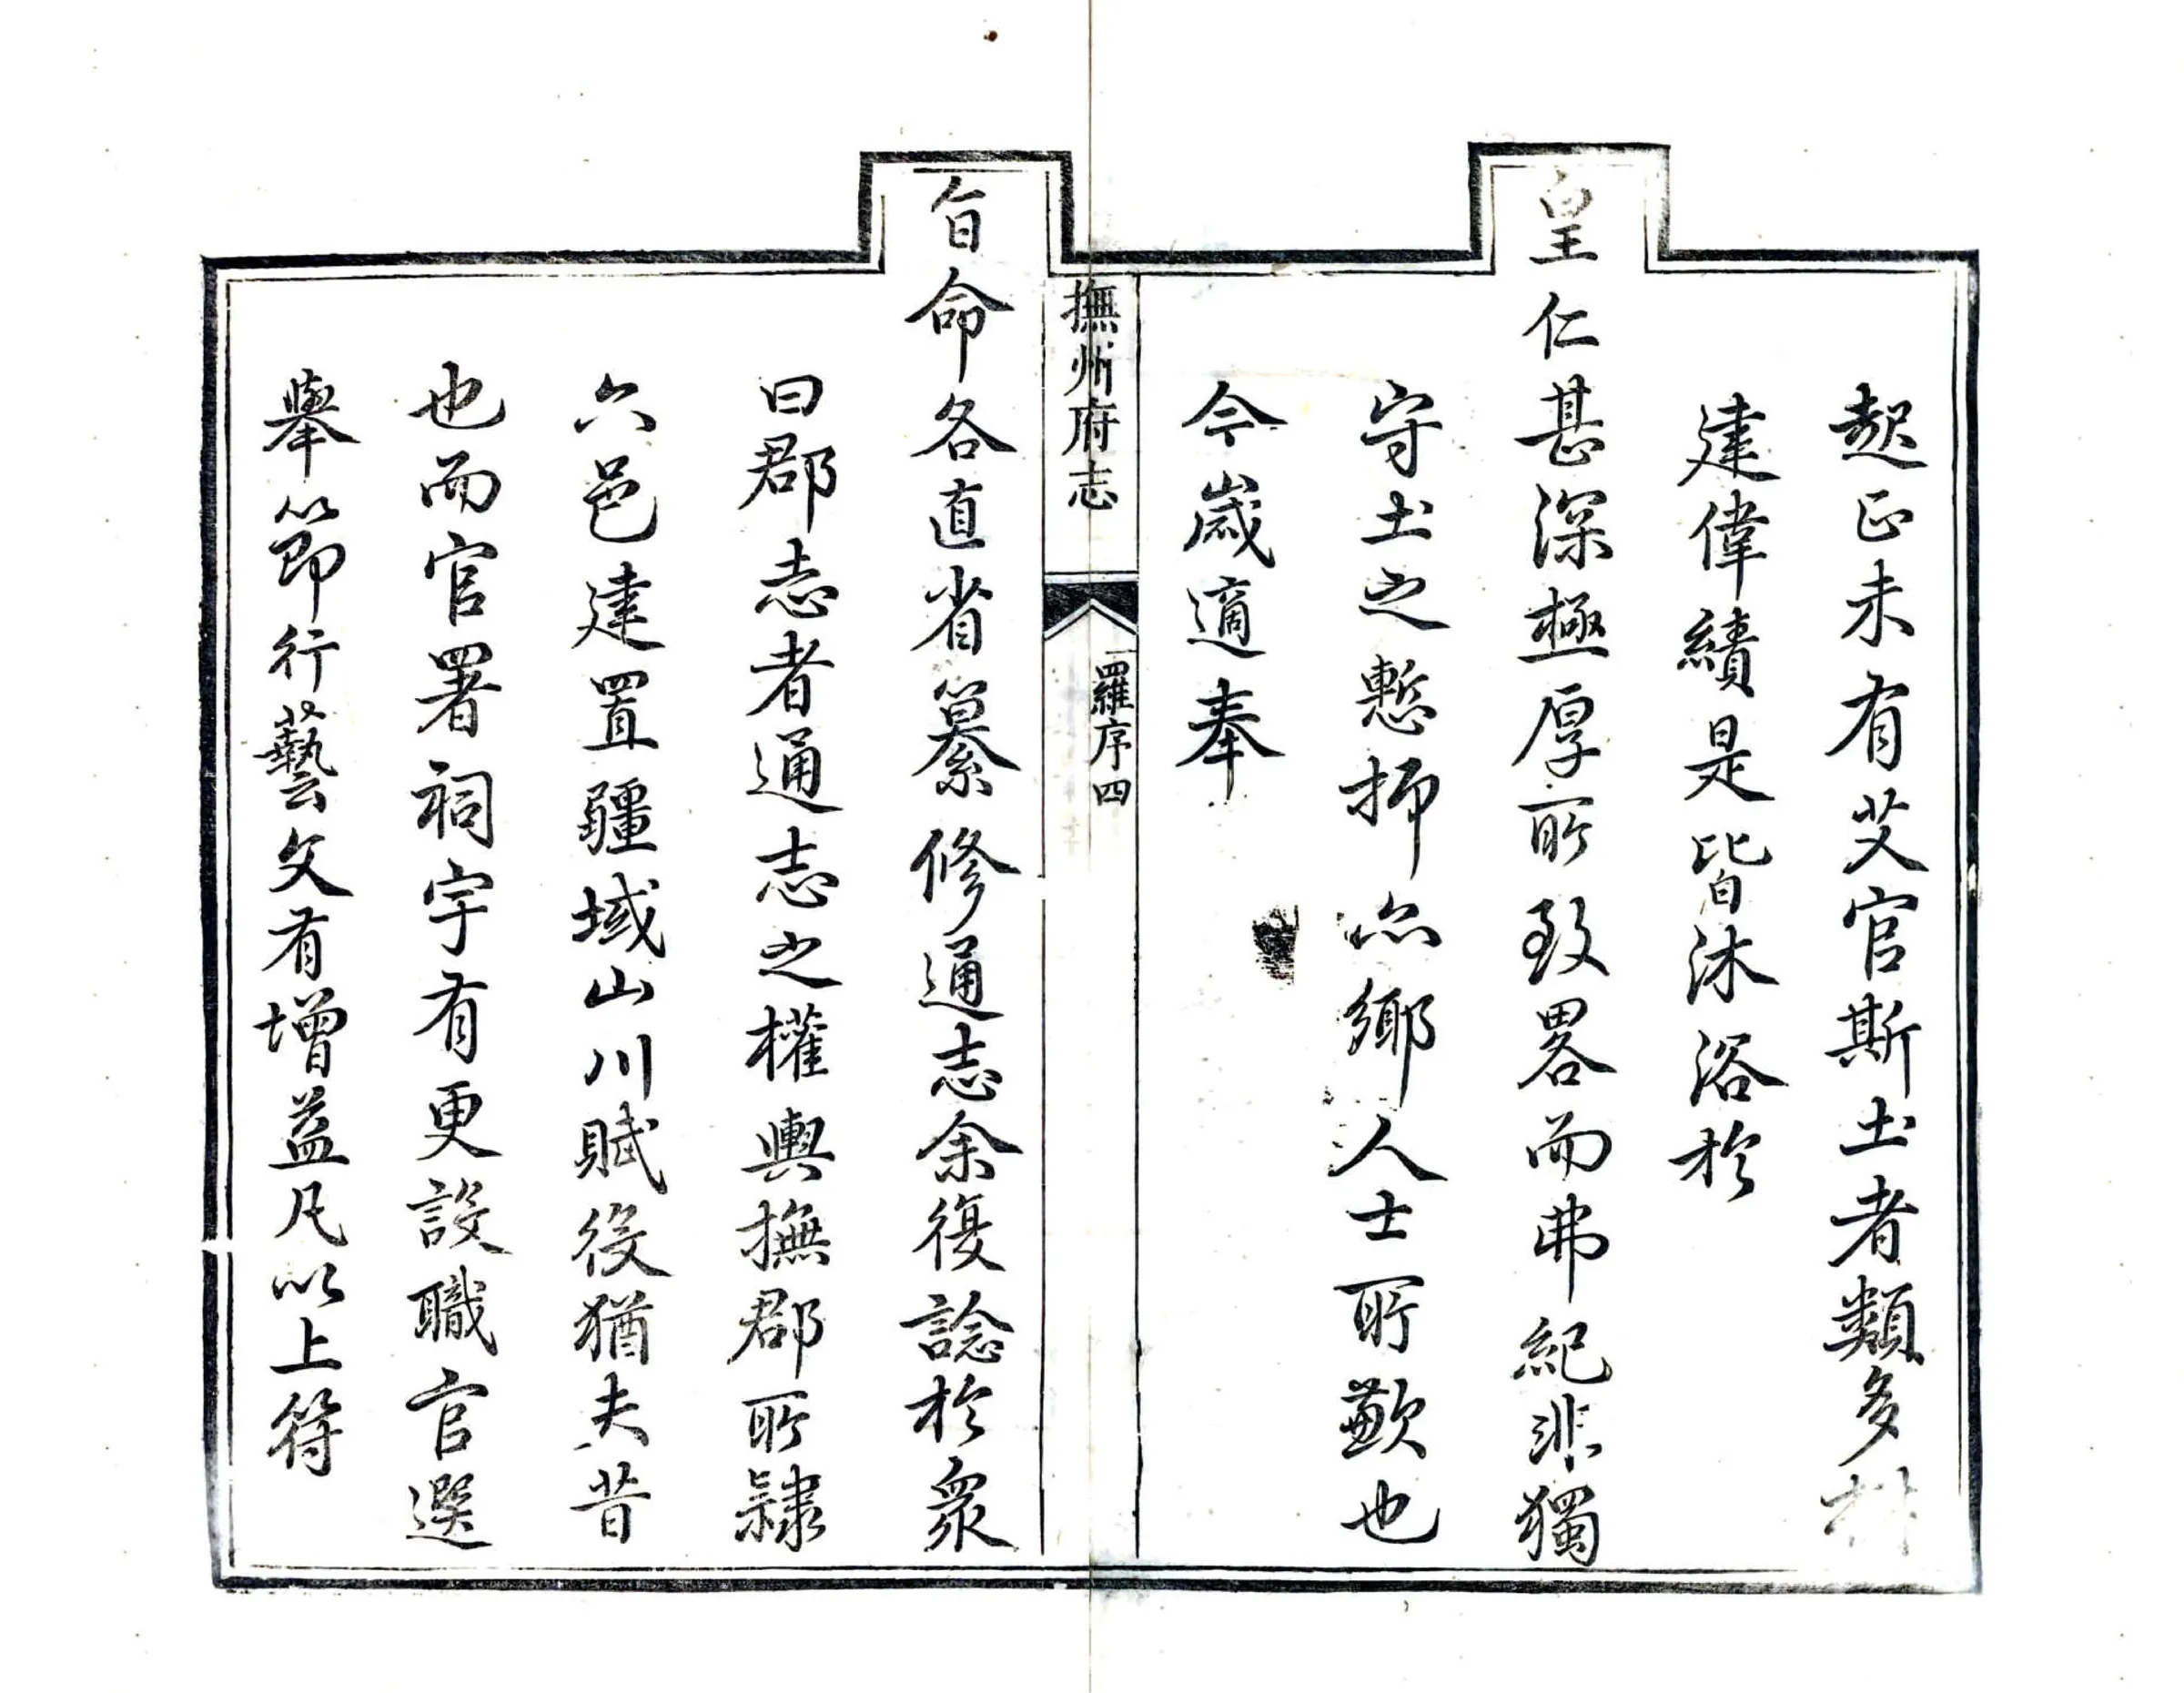 起正未有艾官斯土者類多材
建偉績是皆沐浴於
皇仁甚深極厚所致畧而弗紀非獨
守土之慙抑亦鄉人士所歉也
今歲適奉
撫州府志
羅序四
旨命各直省纂修通志余復諗於衆
曰郡志者通志之權輿撫郡所隸
六邑建置疆域山川賦役猶夫昔
也而官署祠宇有更設職官選
舉節行藝文有增益凡以上符